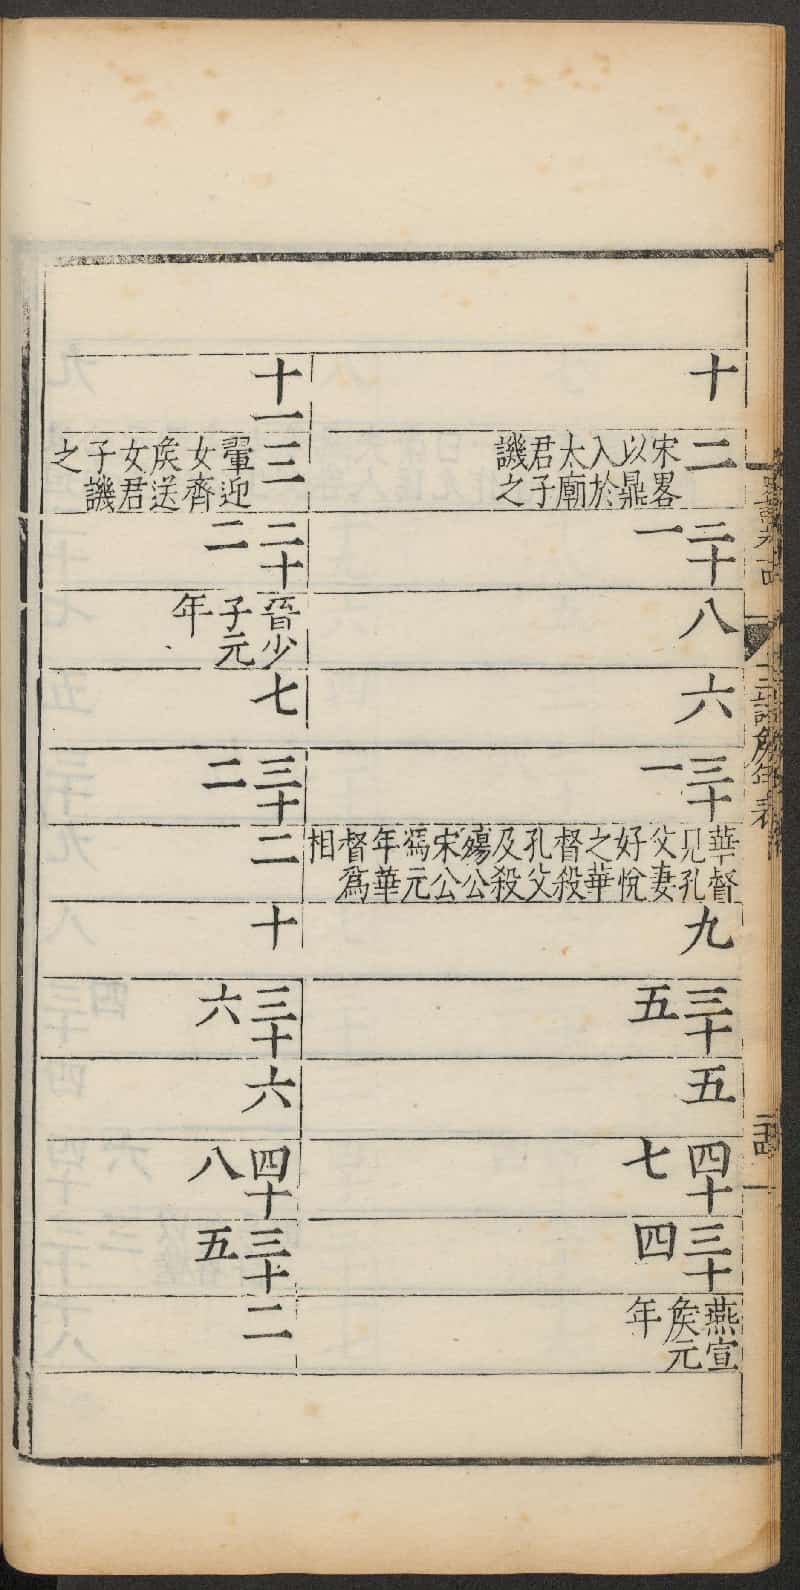 十
二
宋畧
以鼎
入於
太廟
君子
譏之
二十
一
八
六
三十
一
華督
見孔
父妻
好悅
之華
督殺
孔父
及殺
殤公
宋公
馮元
年華
督爲
相
九
三十
五
五
四十
七
三十
四
燕宣
矦元
年
十一
三
翬迎
女齊
矦送
女君
子譏
之
二十
二
晉少
子元
年
七
三十
二
二
十
三十
六
六
四十
八
三十
五
二